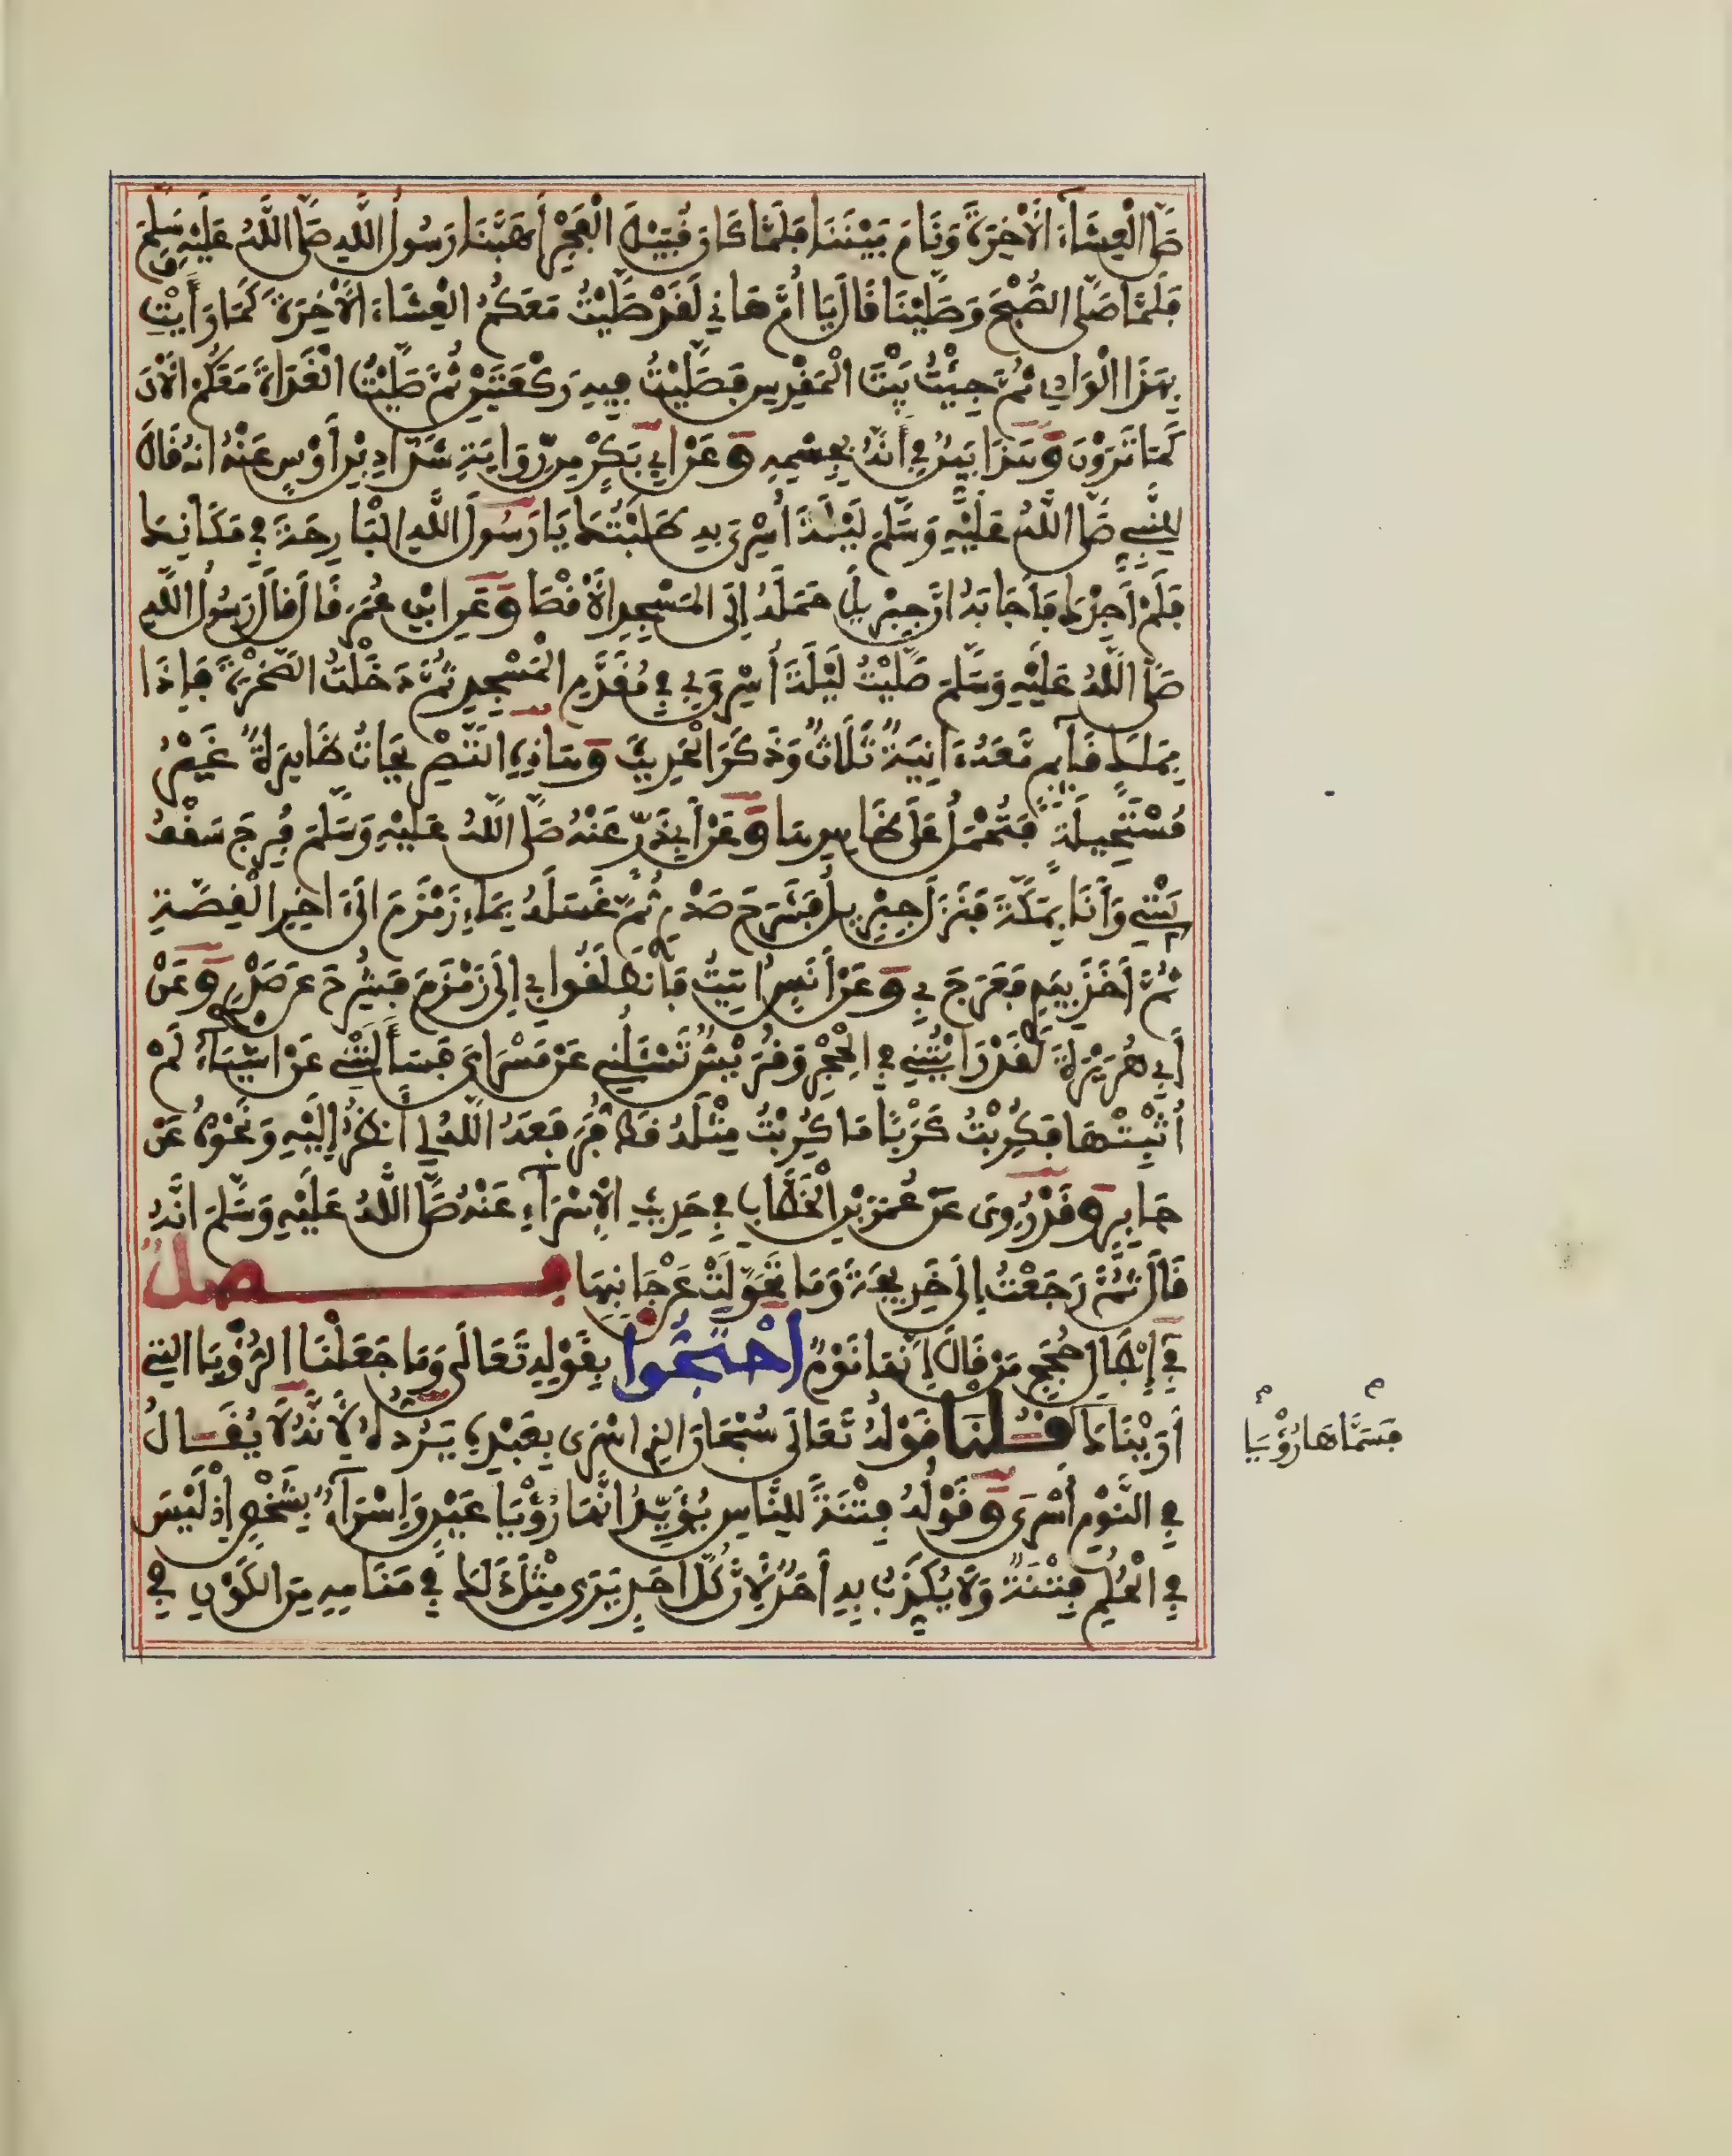 صَلَّى الْعِشَاءَ الْأَخِرَةَ وَنَامَ بَيْنَنَا فَلَمَّا كَانَ قُبَيْلَ الْفَجْرِ أَهَبَّنَا رَسُولُ اللَّهِ صَلَّى اللَّهُ عَلَيْهِ وَسَلَّمَ
فَلَمَّا صَلَّى الصُّبْحَ وَصَلَّيْنَا قَالَ يَا أُمَّ هَانِي لَقَدْ صَلَّيْتُ مَعَكُمُ الْعِشَاءَ الْأَخِرَةَ كَمَا رَأَيْتِ
بِهَذَا الْوَادِي ثُمَّ جِئْتُ بَيْتَ الْمَقْدِسِ فَصَلَّيْتُ فِيهِ رَكْعَتَيْنِ ثُمَّ صَلَّيْتُ الْغَدَاةَ مَعَكُمُ الْآنَ
كَمَا تَرَوْنَ وَهَذَا بَيِّنٌ فِي أَنَّهُ بِجِسْمِهِ وَعَنْ أَبِي بَكْرٍ مِنْ رِوَايَةِ شَدَّادِ بْنِ أَوْسٍ عَنْهُ أَنَّهُ قَالَ
لِلنَّبِيِّ صَلَّى اللَّهُ عَلَيْهِ وَسَلَّمَ لَيْلَةَ أُسْرِيَ بِهِ طَلَبْتُكَ يَا رَسُولَ اللَّهِ الْبَارِحَةَ فِي مَكَانِكَ
فَلَمْ أَجِدْكَ فَأَجَابَهُ أَنَّ جِبْرِيلَ حَمَلَهُ إِلَى الْمَسْجِدِ الْأَقْصَا وَعَنِ ابْنِ عُمَرَ قَالَ قَالَ رَسُولُ اللَّهِ
صَلَّى اللَّهُ عَلَيْهِ وَسَلَّمَ صَلَّيْتُ لَيْلَةَ أُسْرِيَ بِي فِي مُقَدَّمِ الْمَسْجِدِ ثُمَّ دَخَلْتُ الصَّخْرَةَ فَإِذَا
بِمَلَكٍ قَائِمٍ مَعَهُ ءَانِيَةٌ ثَلَاثٌ وَذَكَرَ الْحَدِيثَ وَهَذِهِ التَّصْرِيحَاتُ ظَاهِرَةٌ غَيْرُ
مُسْتَحِيلَةٍ فَتُحْمَلُ عَلَى ظَاهِرِهَا وَعَنْ أَبِي ذَرٍّ عَنْهُ صَلَّى اللَّهُ عَلَيْهِ وَسَلَّمَ فُرِجَ سَقْفُ
بَيْتِي وَأَنَا بِمَكَّةَ فَنَزَلَ جِبْرِيلُ فَشَرَحَ صَدْرِي ثُمَّ غَسَلَهُ بِمَاءِ زَمْزَمَ إِلَى ءَاخِرِ الْقِصَّةِ
ثُمَّ أَخَذَ بِيَدِي فَعَرَجَ بِي وَعَنْ أَنَسٍ أُتِيتُ فَانْطَلَقُوا بِي إِلَى زَمْزَمَ فَشُرِحَ عَنْ صَدْرِي وَعَنْ
أَبِي هُرَيْرَةَ لَقَدْ رَأَيْتُنِي فِي الْحِجْرِ وَقُرَيْشٌ تَسْئَلُنِي عَنْ مَسْرَايَ فَسَأَلَتْنِي عَنْ أَشْيَاءَ لَمْ
أُثْبِتْهَا فَكُرِبْتُ كَرْبًا مَا كُرِبْتُ مِثْلَهُ قَطُّ فَرَفَعَهُ اللَّهُ لِي أَنْظُرُ إِلَيْهِ وَنَحْوُهُ عَنْ
جَابِرٍ وَقَدْ رُوِيَ عَنْ عُمَرَ بْنِ الْخَطَّابِ فِي حَدِيثِ الْإِسْرَاءِ عَنْهُ صَلَّى اللَّهُ عَلَيْهِ وَسَلَّمَ أَنَّهُ
قَالَ ثُمَّ رَجَعْتُ إِلَى خَدِيجَةَ وَمَا تَحَوَّلَتْ عَنْ جَانِبِهَا فصل
فِي إِبْطَالِ حُجَجِ مَنْ قَالَ إِنَّهَا نَوْمٌ احْتَجُّوا بِقَوْلِهِ تَعَالَى وَمَا جَعَلْنَا الرُّؤْيَا الَّتِي
أَرَيْنَاكَ فَسَمَّاهَا رُؤْيَا قُلْنَا قَوْلُهُ تَعَالَى سُبْحَانَ الَّذِي أَسْرَى بِعَبْدِهِ يَرُدُّهُ لِأَنَّهُ لَا يُقَالُ
فِي النَّوْمِ أَسْرَى وَقَوْلُهُ فِتْنَةً لِلنَّاسِ يُؤَيِّدُ أَنَّهَا رُؤْيَا عَيْنٍ وَإِسْرَاءٌ بِشَخْصٍ إِذْ لَيْسَ
فِي الْحُلْمِ فِتْنَةٌ وَلَا يُكَذِّبُ بِهِ أَحَدٌ لِأَنَّ كُلَّ أَحَدٍ يَرَى مِثْلَ ذَلِكَ فِي مَنَامِهِ مِنَ الْكَوْنِ فِي